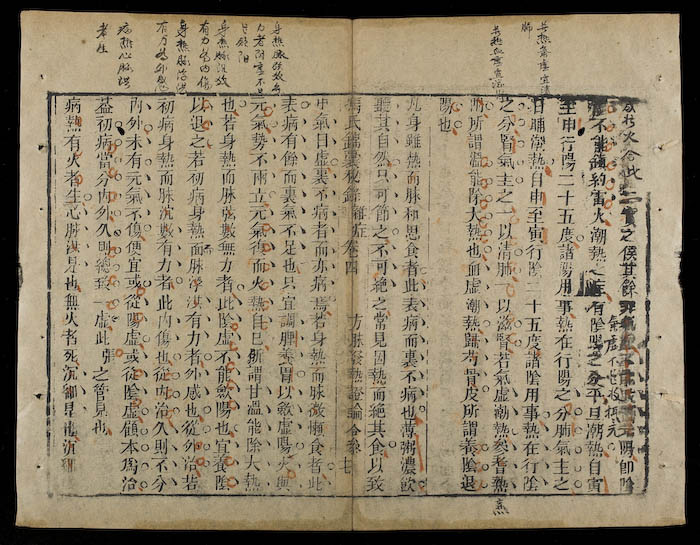 身熱氣虛宜清
肺
身熱血虛宜滋
之候其餘
虛不能斂約雷火潮熱之症有陰陽之分平旦潮熱自寅
至申行陽二十五度諸陽用事熱在行陽之分肺氣主之
日晡潮熱自申至寅行陰二十五度諸陰用事熱在行陰
之分腎氣主之一以清肺一以滋腎若氣虛潮熱參耆熟
附所謂溫能除大熱也血虛潮熱歸芍骨皮所謂養陰退
陽也
凡身雖熱而脉和思食者此表病而裏不病也薄粥濃飲
聽其自然只可節之不可絕之常見因熱而絕其食以致
馮氏錦囊秘錄 雜症卷四 方脉發熱證論合參 七
身熱脉虛數無
力者陰虛不足
身熱脉沉數
有力為內傷
身熱脉浮洪
有力為外感
病熱心脉洪
者生
中氣日虛裏不病者而亦病焉若身熱而脉微懶食者此
表病有餘而裏氣不足也只宜調脾養胃以斂虛陽火與
元氣勢不兩立元氣復而火熱自已所謂甘溫能除大熱
也若身熱而脉虛數無力者此陰虛不能斂陽也宜養陰
以退之若初病身熱而脉浮洪有力者外感也從外治若
初病身熱而脉沉數有力者此內傷也從內治久則不分
內外未有元氣不傷便宜或從陽虛或從陰虛顧本為治
蓋初病當分內外久則總致一虛此之管見也
病熱有火者生心脉洪是也無火者死沉細是也沉細